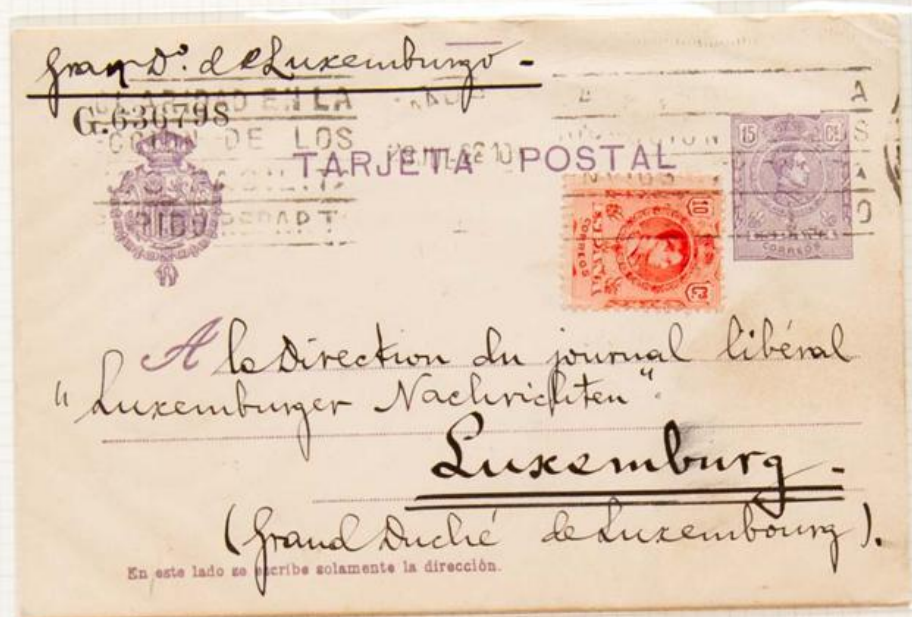 Gran D°. de Luxemburgo -
G.636798
EN LA
DE LOS
TARJETA POSTAL
15 Cs.
CORREOS
10
ESPAÑA
CORREOS
A la Direction du journal libéral
"Luxemburger Nachrichten".
Luxemburg -
(Grand Duché de Luxembourg).
En este lado se escribe solamente la dirección.